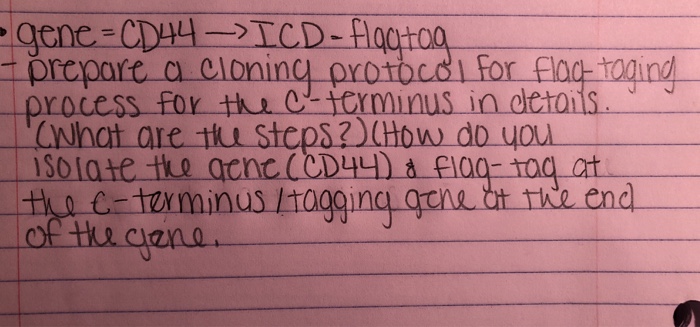 • gene = CD44 → ICD - flagtag
- prepare a cloning protocol for flag-taging
process for the C-terminus in details.
(What are the steps?) (How do you
isolate the gene (CD44) & flag-tag at
the c-terminus / tagging gene at the end
of the gene.